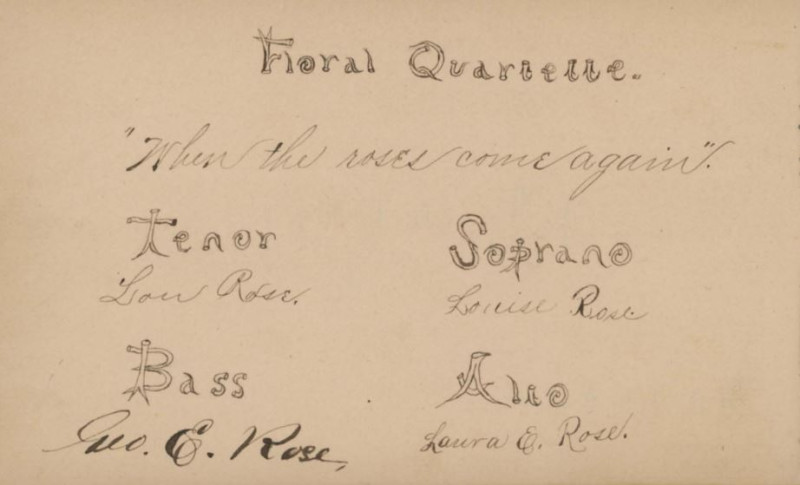 Floral Quartette.
"When the roses come again".
Tenor
Lou Rose.
Soprano
Louise Rose
Bass
Geo. E. Rose,
Alto
Laura E. Rose.